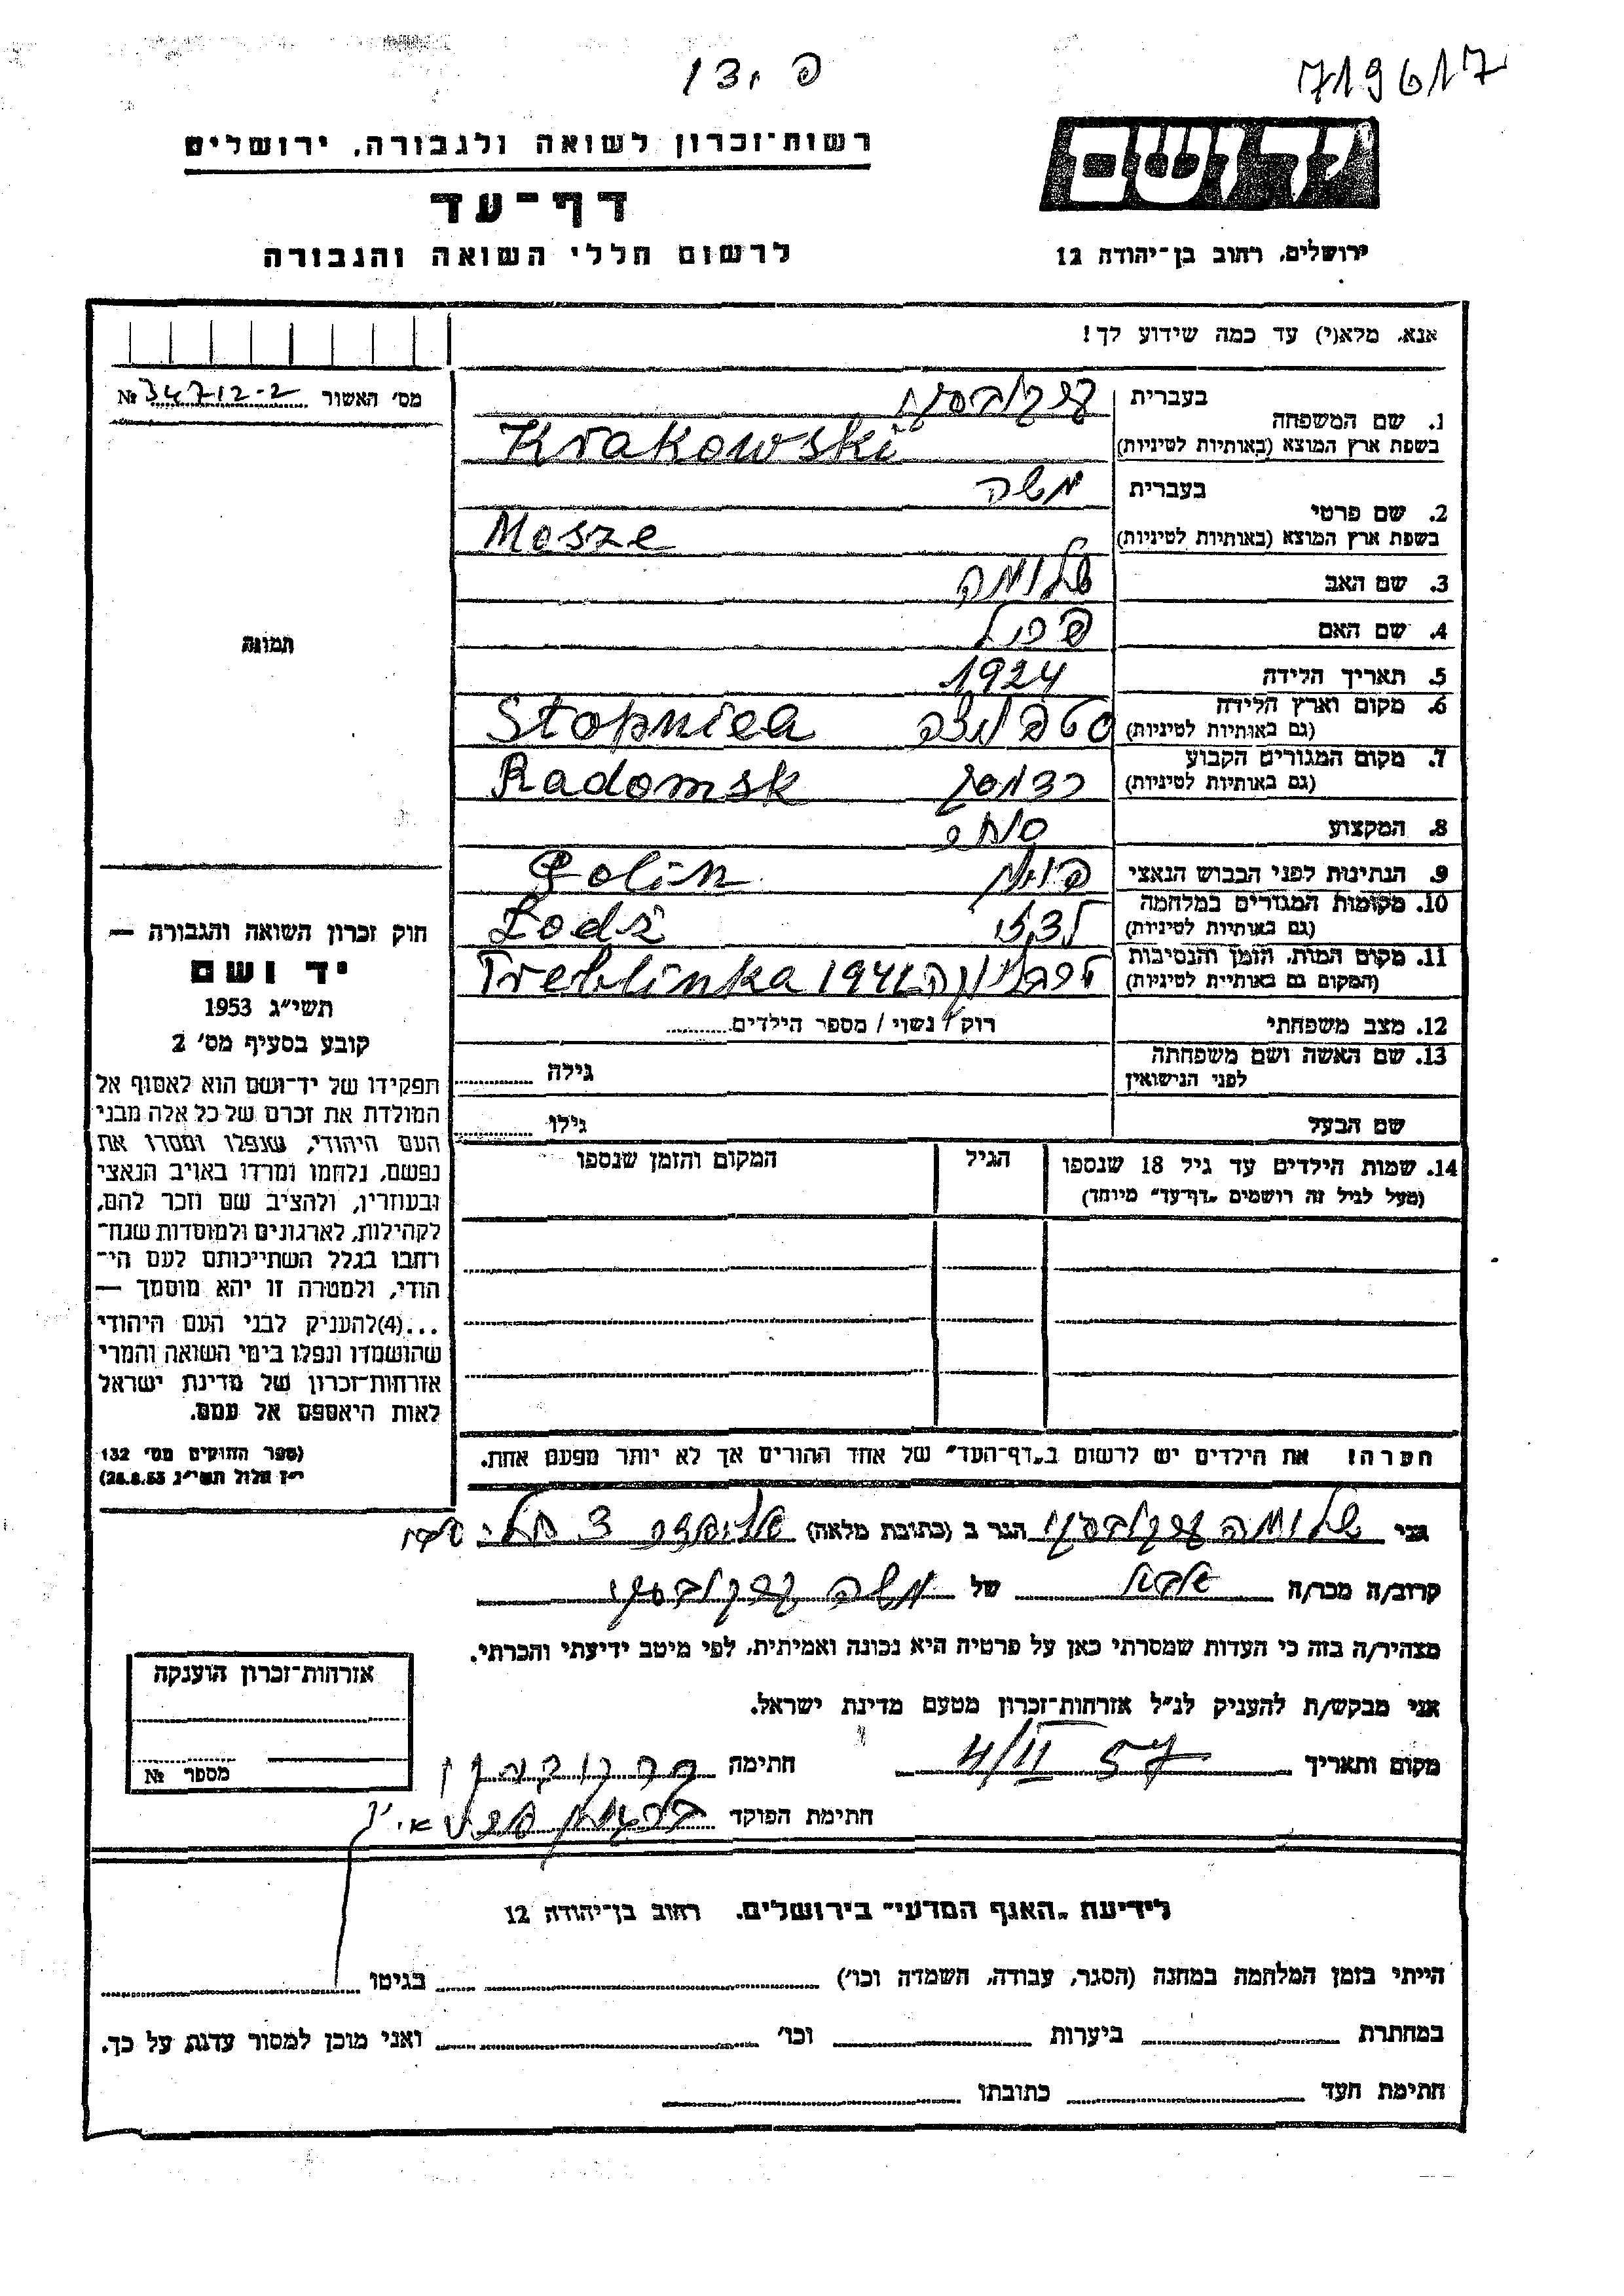 719617
רשות־זכרון לשואה ולגבורה, ירושלים
דף־עד
לרשום חללי השואה והגבורה
ידושם
ירושלים, רחוב בן־יהודה 12
אנא, מלא(י) עד כמה שידוע לך!
מס׳ האשור № 34712-2
תמונה
1. שם המשפחה
בעברית קרקובסקי
בשפת ארץ המוצא (באותיות לטיניות) Krakowski
2. שם פרטי
בעברית משה
בשפת ארץ המוצא (באותיות לטיניות) Mosze
3. שם האב שלומה
4. שם האם
5. תאריך הלידה 1924
6. מקום וארץ הלידה
(גם באותיות לטיניות) Stopnica
7. מקום המגורים הקבוע
(גם באותיות לטיניות) רדומסק Radomsk
8. המקצוע
9. הנתינות לפני הכבוש הנאצי פולין Polin
10. מקומות המגורים במלחמה
(גם באותיות לטיניות) לודז Lodź
11. מקום המות, הזמן והנסיבות
(המקום גם באותיית לטיניות) טרבלינקה Treblinka
12. מצב משפחתי רוק / נשוי / מספר הילדים
13. שם האשה ושם משפחתה
לפני הנישואין גילה
שם הבעל גילו
14. שמות הילדים עד גיל 18 שנספו הגיל המקום והזמן שנספו
(מעל לגיל זה רושמים „דף־עד״ מיוחד)
הערה! את הילדים יש לרשום ב„דף־העד״ של אחד ההורים אך לא יותר מפעם אחת.
חוק זכרון השואה והגבורה —
יד ושם
תשי״ג 1953
קובע בסעיף מס׳ 2
תפקידו של יד־ושם הוא לאסוף אל
המולדת את זכרם של כל אלה מבני
העם היהודי, שנפלו ומסרו את
נפשם, נלחמו ומרדו באויב הנאצי
ובעוזריו, ולהציב שם וזכר להם,
לקהילות, לארגונים ולמוסדות שנח־
רחבו בגלל השתייכותם לעם הי־
הודי, ולמטרה זו יהא מוסמך —
...(4)להעניק לבני העם היהודי
שהושמדו ונפלו בימי השואה והמרי
אזרחות־זכרון של מדינת ישראל
לאות היאספם אל עמם.
(ספר החוקים מס׳ 132
י״ז אלול תשי״ג 28.8.53)
אני שלומה קרקובסקי הגר ב (כתובת מלאה)
קרוב/ה מכר/ה אבא של משה קרקובסקי
מצהיר/ה בזה כי העדות שמסרתי כאן על פרטיה היא נכונה ואמיתית, לפי מיטב ידיעתי והכרתי.
אני מבקש/ת להעניק לנ״ל אזרחות־זכרון מטעם מדינת ישראל.
מקום ותאריך 4/II 57 חתימה
חתימת הפוקד
אזרחות־זכרון הוענקה
מספר №
לידיעת „האגף המדעי״ בירושלים, רחוב בן־יהודה 12
הייתי בזמן המלחמה במחנה (הסגר, עבודה, השמדה וכו׳) בגיטו
במחתרת ביערות וכו׳ ואני מוכן למסור עדות על כך.
חתימת העד כתובתו